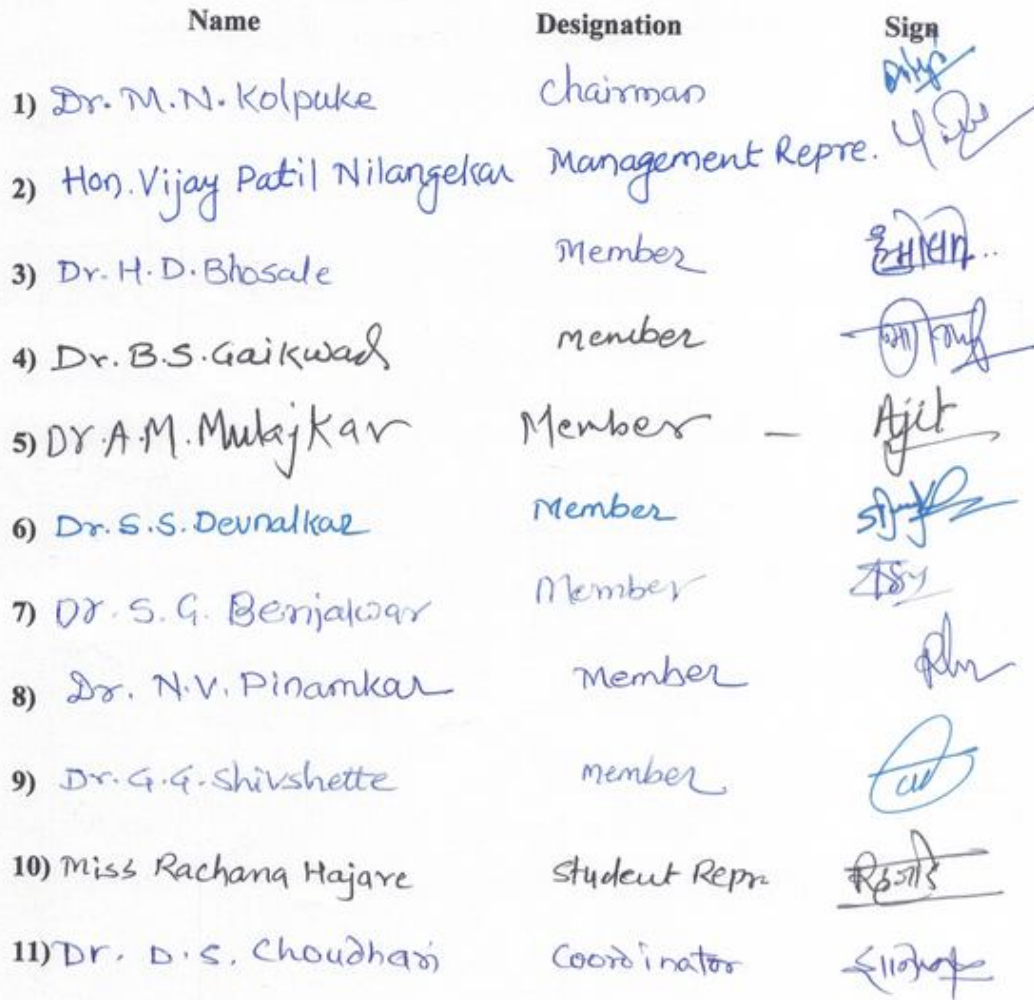 Name Designation Sign
1) Dr. M.N. Kolpuke Chairman
2) Hon. Vijay Patil Nilangekar Management Repre.
3) Dr. H.D. Bhosale Member
4) Dr. B.S. Gaikwad member
5) Dr A.M. Mulajkar Member – Ajit
6) Dr. S.S. Devnalkar Member
7) Dr. S.G. Benjalwar Member
8) Dr. N.V. Pinamkar Member
9) Dr. G.G. Shivshette member
10) Miss Rachana Hajare Student Repr.
11) Dr. D.S. Choudhari Coordinator